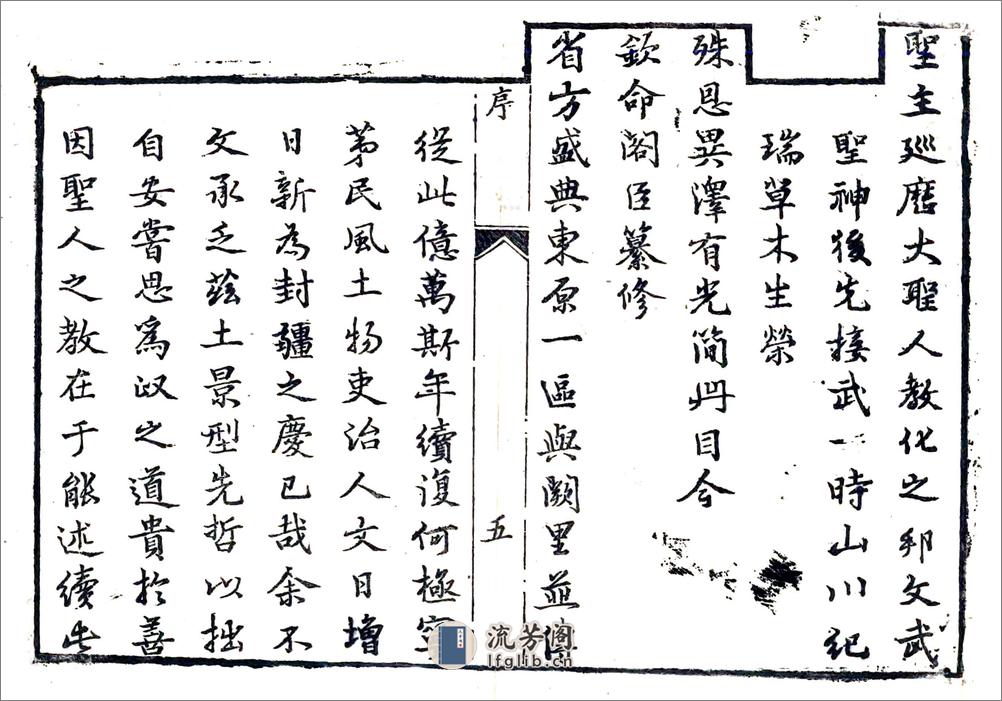 聖主廵歷大聖人教化之邦文武
聖神後先接武一時山川紀
瑞草木生榮
殊恩異澤有光簡冊目今
欽命閣臣纂修
省方盛典東原一區與闕里並傳
序
五
從此億萬斯年續復何極寧
茅民風土物吏治人文日增
日新為封疆之慶已哉余不
文承乏茲土景型先哲以拙
自安嘗思為政之道貴於善
因聖人之教在于能述續此
流芳閣
lfglib.cn